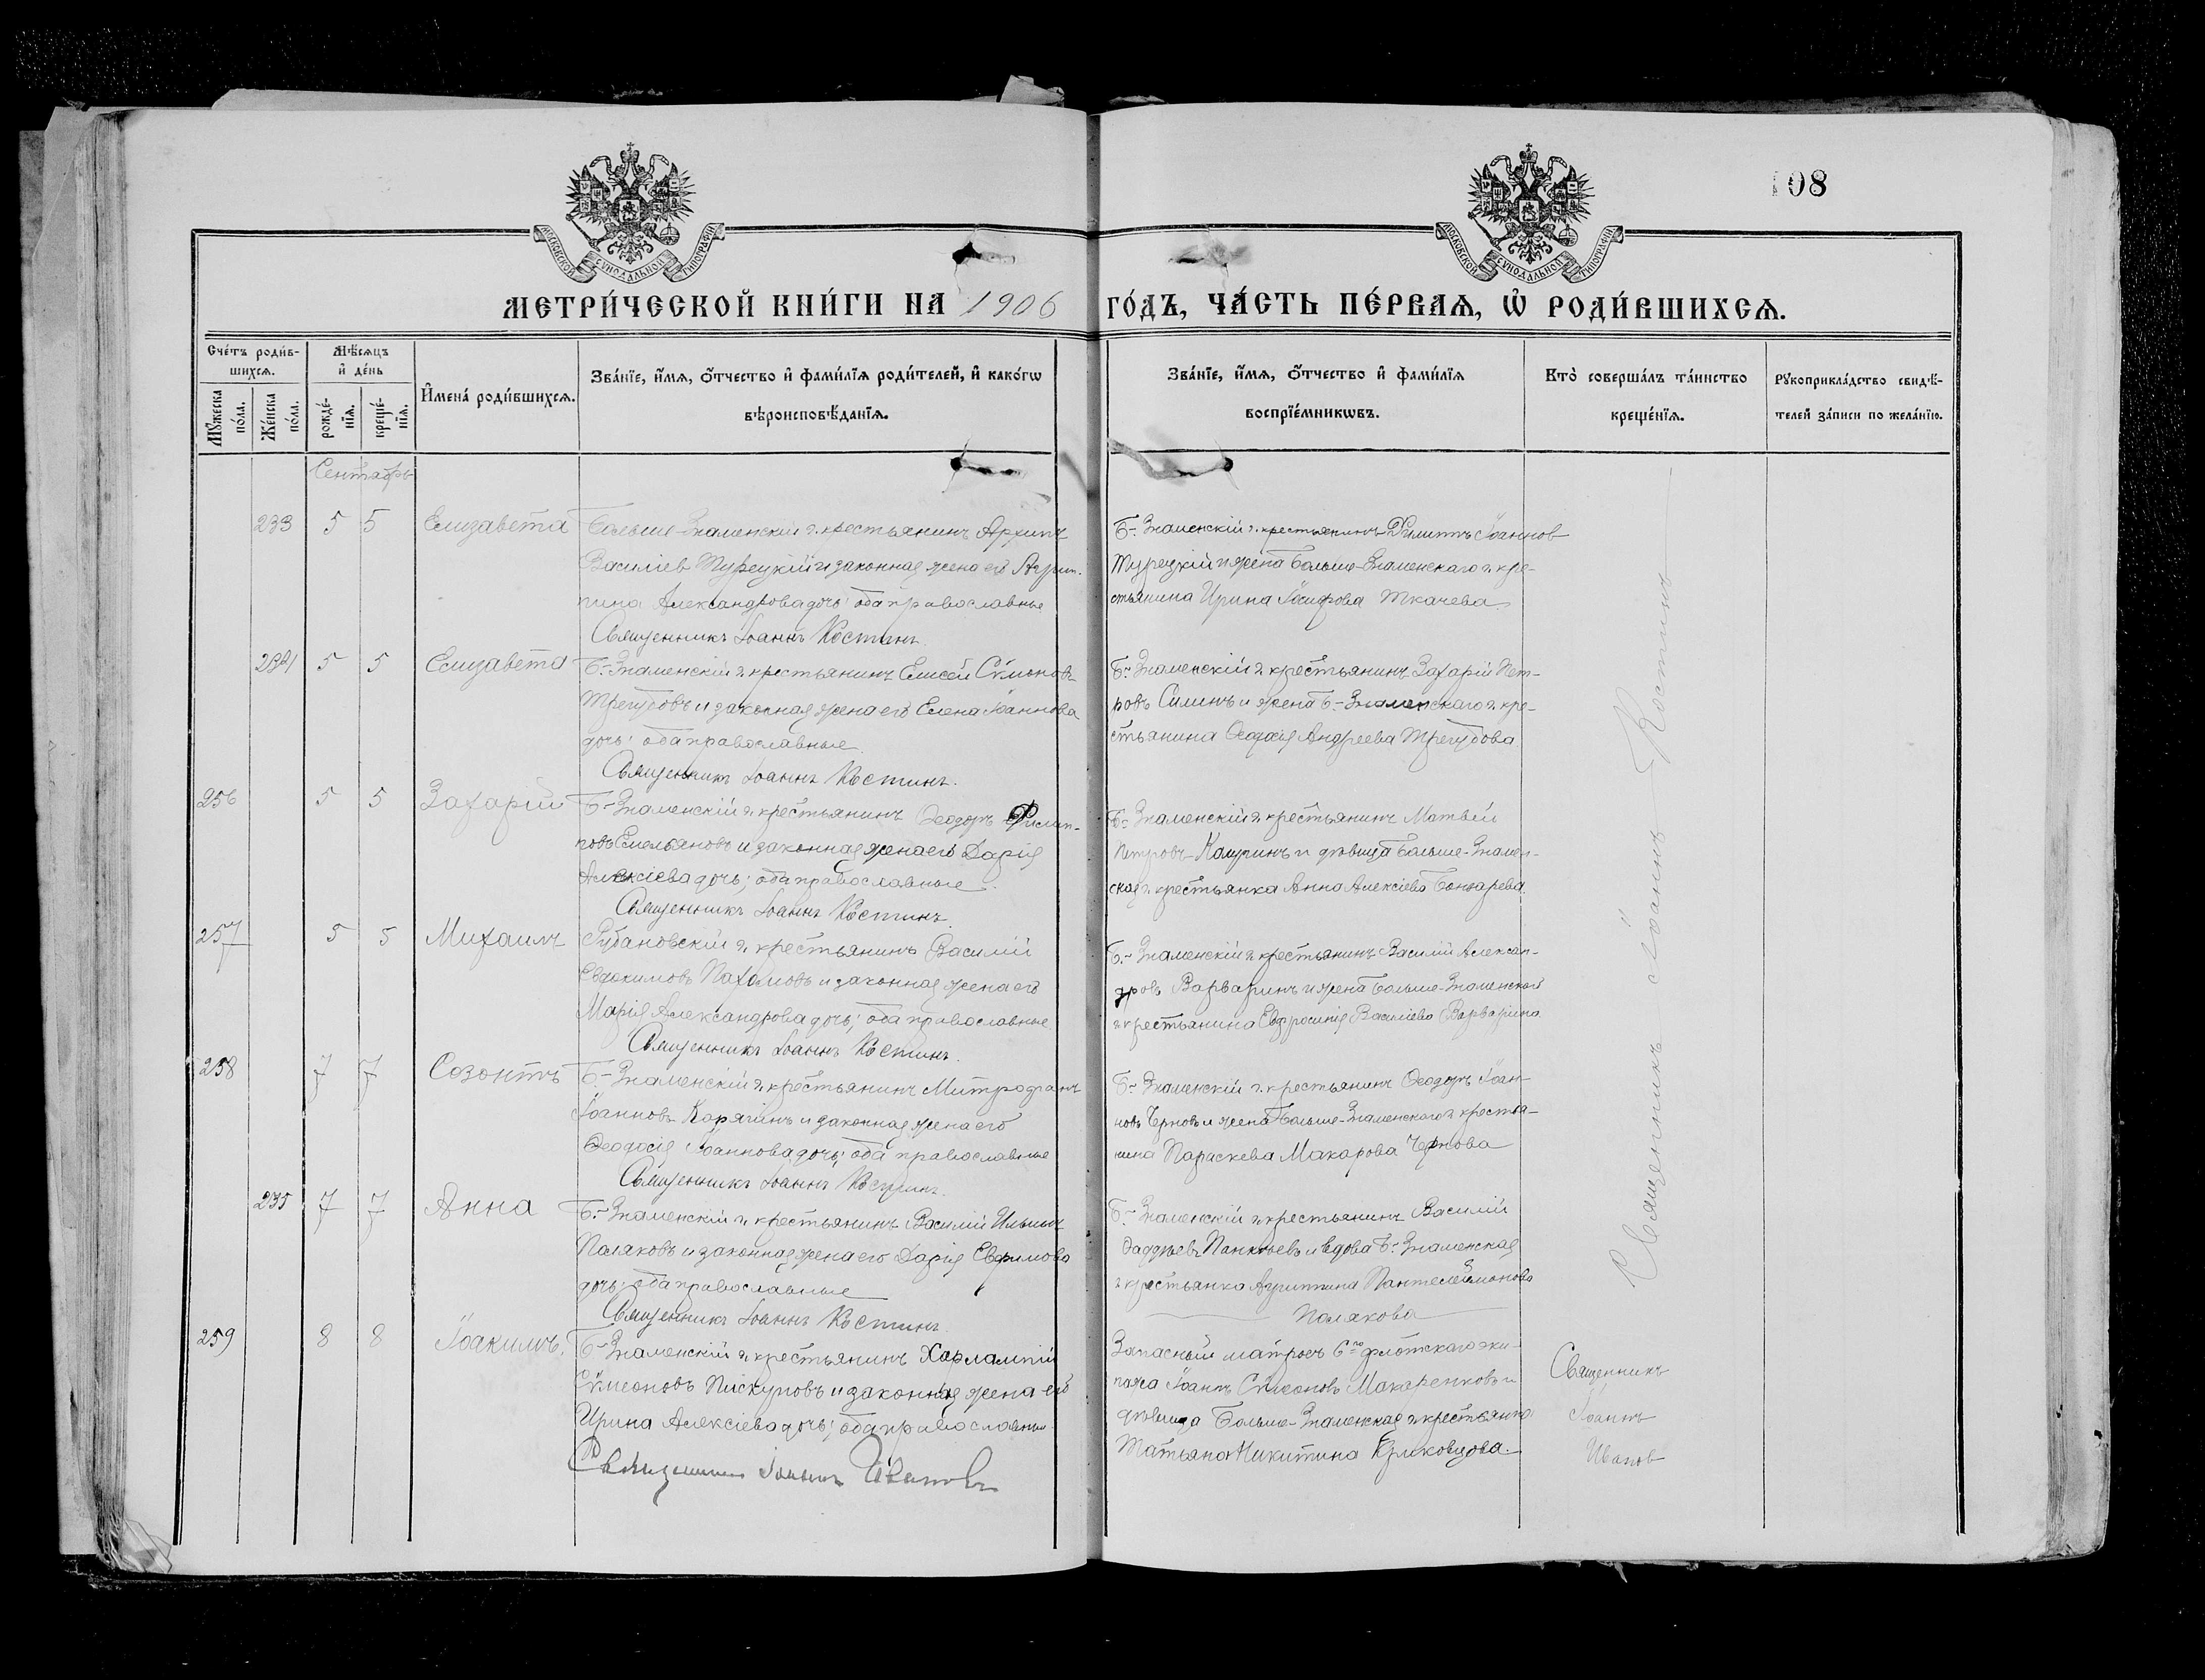 108
МОСКОВСКОЙ СУНОДАЛЬНОЙ ТИПОГРАФІИ
МОСКОВСКОЙ СУНОДАЛЬНОЙ ТИПОГРАФІИ
МЕТРИ́ЧЕСКОЙ КНИ́ГИ НА 1906 ГО́ДЪ, ЧА́СТЬ ПЕ́РВАѦ, Ѡ҆ РОДИ́ВШИХСѦ.
Сче́тъ роди́в-
шихсѧ.
Мꙋ́жеска по́ла.
Же́нска по́ла.
Мѣ́сѧцъ
и҆ де́нь
рожде́-
нїѧ.
креще́-
нїѧ.
И҆мена̀ роди́вшихсѧ.
Зва́нїе, и҆́мѧ, ѻ҆́тчество и҆ фами́лїѧ роди́телей, и҆ како́гѡ
вѣроисповѣ́данїѧ.
Зва́нїе, и҆́мѧ, ѻ҆́тчество и҆ фами́лїѧ
воспрїе́мникѡвъ.
Кто̀ соверша́лъ та́инство
креще́нїѧ.
Рꙋкоприкла́дство свидѣ́-
телей за́писи по жела́нїю.
Сентябрь
233 5 5 Елизавета
Больше-Знаменскій г. крестьянинъ Архипъ
Василіев Турецкій и законная жена его Агрип-
пина Александрова дочь; оба православные
Священникъ Іоаннъ Костинъ.
Б.-Знаменскій г. крестьянинъ Филиппъ Іоаннов
Турецкій и жена Больше-Знаменскаго г. кре-
стьянина Ирина Іосифова Ткачева
234 5 5 Елизавета
Б.-Знаменскій г. крестьянинъ Елисей Сѵмонов-
Трегубовъ и законная жена его Елена Іоаннова
дочь; оба православные.
Священникъ Іоаннъ Костинъ.
Б.-Знаменскій г. крестьянинъ Захарій Пет-
ровъ Силинъ и жена Б.-Знаменскаго г. кре-
стьянина Ѳеодосія Андреева Трегубова
256 5 5 Захарій
Б.-Знаменскій г. крестьянинъ Ѳеодоръ Филип-
повъ Емельяновъ и законная жена его Дарія
Алексіева дочь; оба православные.
Священникъ Іоаннъ Костинъ.
Б.-Знаменскій г. крестьянинъ Матвѣй
Петровъ и дѣвица Больше-Знамен-
ская г. крестьянка Анна Алексіева
257 5 5 Михаилъ
Рубановскій г. крестьянинъ Василій
Евдокимовъ Пахомовъ и законная жена его
Марія Александрова дочь; оба православные.
Священникъ Іоаннъ Костинъ.
Б.-Знаменскій г. крестьянинъ Василій Алексан-
дровъ Варваринъ и жена Больше-Знаменской
г. крестьянина Евфросинія Василіева Варварина
258 7 7 Созонтъ
Б.-Знаменскій г. крестьянинъ Митрофанъ
Іоанновъ Корягинъ и законная жена его
Ѳеодосія Іоаннова дочь; оба православные
Священникъ Іоаннъ Костинъ.
Б.-Знаменскій г. крестьянинъ Ѳеодоръ Іоан-
новъ Черновъ и жена Больше-Знаменскаго г. крестья-
нина Параскева Макарова Чернова
235 7 7 Анна
Б.-Знаменскій г. крестьянинъ Василій Ильинъ
Поляковъ и законная жена его Дарія Евфимова
дочь; оба православные
Священникъ Іоаннъ Костинъ
Б.-Знаменскій г. крестьянинъ Василій
Ѳаддѣевъ и вдова Б.-Знаменская
г. крестьянка Агриппина Пантелеимонова
Полякова
Священникъ Іоаннъ Костинъ
259 8 8 Іоакимъ.
Б.-Знаменскій г. крестьянинъ Харлампій
Сѵмеоновъ Пискуновъ и законная жена его
Ирина Алексіева дочь; оба православные
Священникъ Іоаннъ Ивановъ
Запасный матросъ 6го флотскаго эки-
пажа Іоаннъ Сѵмеоновъ Макаренковъ и
дѣвица Больше-Знаменская г. крестьянка
Татьяна Никитина
Священникъ
Іоаннъ
Иванов